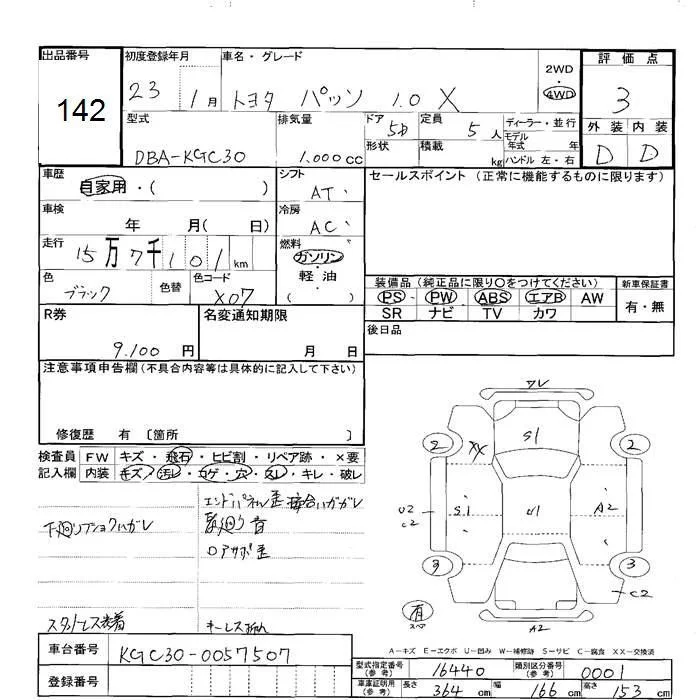 出品番号 初度登録年月 車名・グレード 2WD・4WD 評価点
142 23 1月 トヨタ パッソ 1.0 X 3
型式 排気量 ドア 5D 定員 5人 ディーラー・並行 外装 内装
DBA-KGC30 1,000cc 形状 積載 kg モデル年式 年 ハンドル 左・右 D D
車歴 自家用・( ) シフト AT セールスポイント (正常に機能するものに限ります)
車検 年 月( 日) 冷房 AC
走行 15万7千101km 燃料 ガソリン・軽油 ( )
色 ブラック 色替 色コード X07
装備品 (純正品に限り○をつけてください) 新車保証書
PS・PW ABS エアB AW 有・無
SR ナビ TV カワ
R券 9,100円 名変通知期限 月 日 後日品
注意事項申告欄 (不具合内容等は具体的に記入して下さい)
修復歴 有 〔箇所 〕
検査員記入欄 FW キズ・飛石・ヒビ割・リペア跡・×要
内装 キズ・汚レ・コゲ・穴・スレ・キレ・破レ
エンドパネル歪 接合ハガレ
下廻りブショクハガレ
ロアサポ歪
スタッドレス装着
ワレ
2 XX S1 2
U2 C2 S1 U1 A2
3 3
C2
有 スペア
A2
A-キズ E-エクボ U-凹み W-補修跡 S-サビ C-腐食 XX-交換済
車台番号 KGC30-0057507
登録番号
型式指定番号(参考) 16440 類別区分番号(参考) 0001
車庫証明用(参考) 長さ 364cm 幅 166cm 高さ 153cm